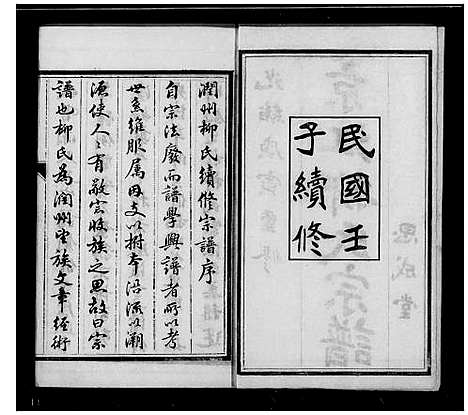 民國壬
子續修
思成堂
宗譜
潤州柳氏續修宗譜序
自宗法廢而譜學興譜者所以考
世系維服屬毋支以樹本沿流以溯
源使人人有敬宗收族之思故曰宗
譜也柳氏為潤州望族文章經術